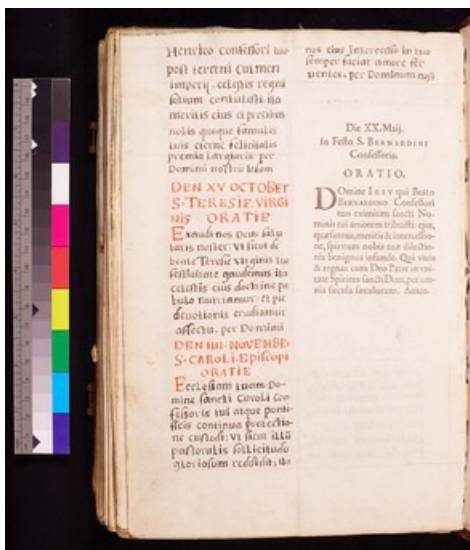 Henrico Confessori tuo
post terreni culmen
imperij, celestis regni
solium contulisti: ita
meritis eius et precibus
nobis quoque famulis
tuis eterne felicitatis
premia largiaris. per
Dominū nostrū Iesum
DEN XV OCTOBER
S. TERESIE. VIRGI
NIS ORATIE
Exaudi nos Deus salu
taris noster: vt sicut de
beate Teresie virginis tue
festiuitate gaudemus ita
celestis eius doctrine pa
bulo nutriamur. et pie
deuotionis erudiamur
affectu. per Dominū
DEN IIII. NOVEMBE.
S. CAROLI. Episcopi
ORATIE
Ecclesiam tuam Do-
mine sancti Caroli Con
fessoris tui atque ponti-
ficis continua protectio
ne custodi: vt sicut illū
pastoralis sollicitudo
gloriosum reddidit: ita
nos eius intercessio in tuo
semper faciat amore fer
ventes. per Dominum
Die XX. Maij.
In Festo S. BERNARDINI
Confessoris.
ORATIO.
DOmine IESV qui Beato
BERNARDINO Confessori
tuo eximium sancti No-
minis tui amorem tribuisti: eius,
quæsumus, meritis & intercessio-
ne, spiritum nobis tuæ dilectio-
nis benignus infunde. Qui viuis
& regnas cum Deo Patre in vni-
tate Spiritus sancti Deus, per om-
nia sæcula sæculorum. Amen.